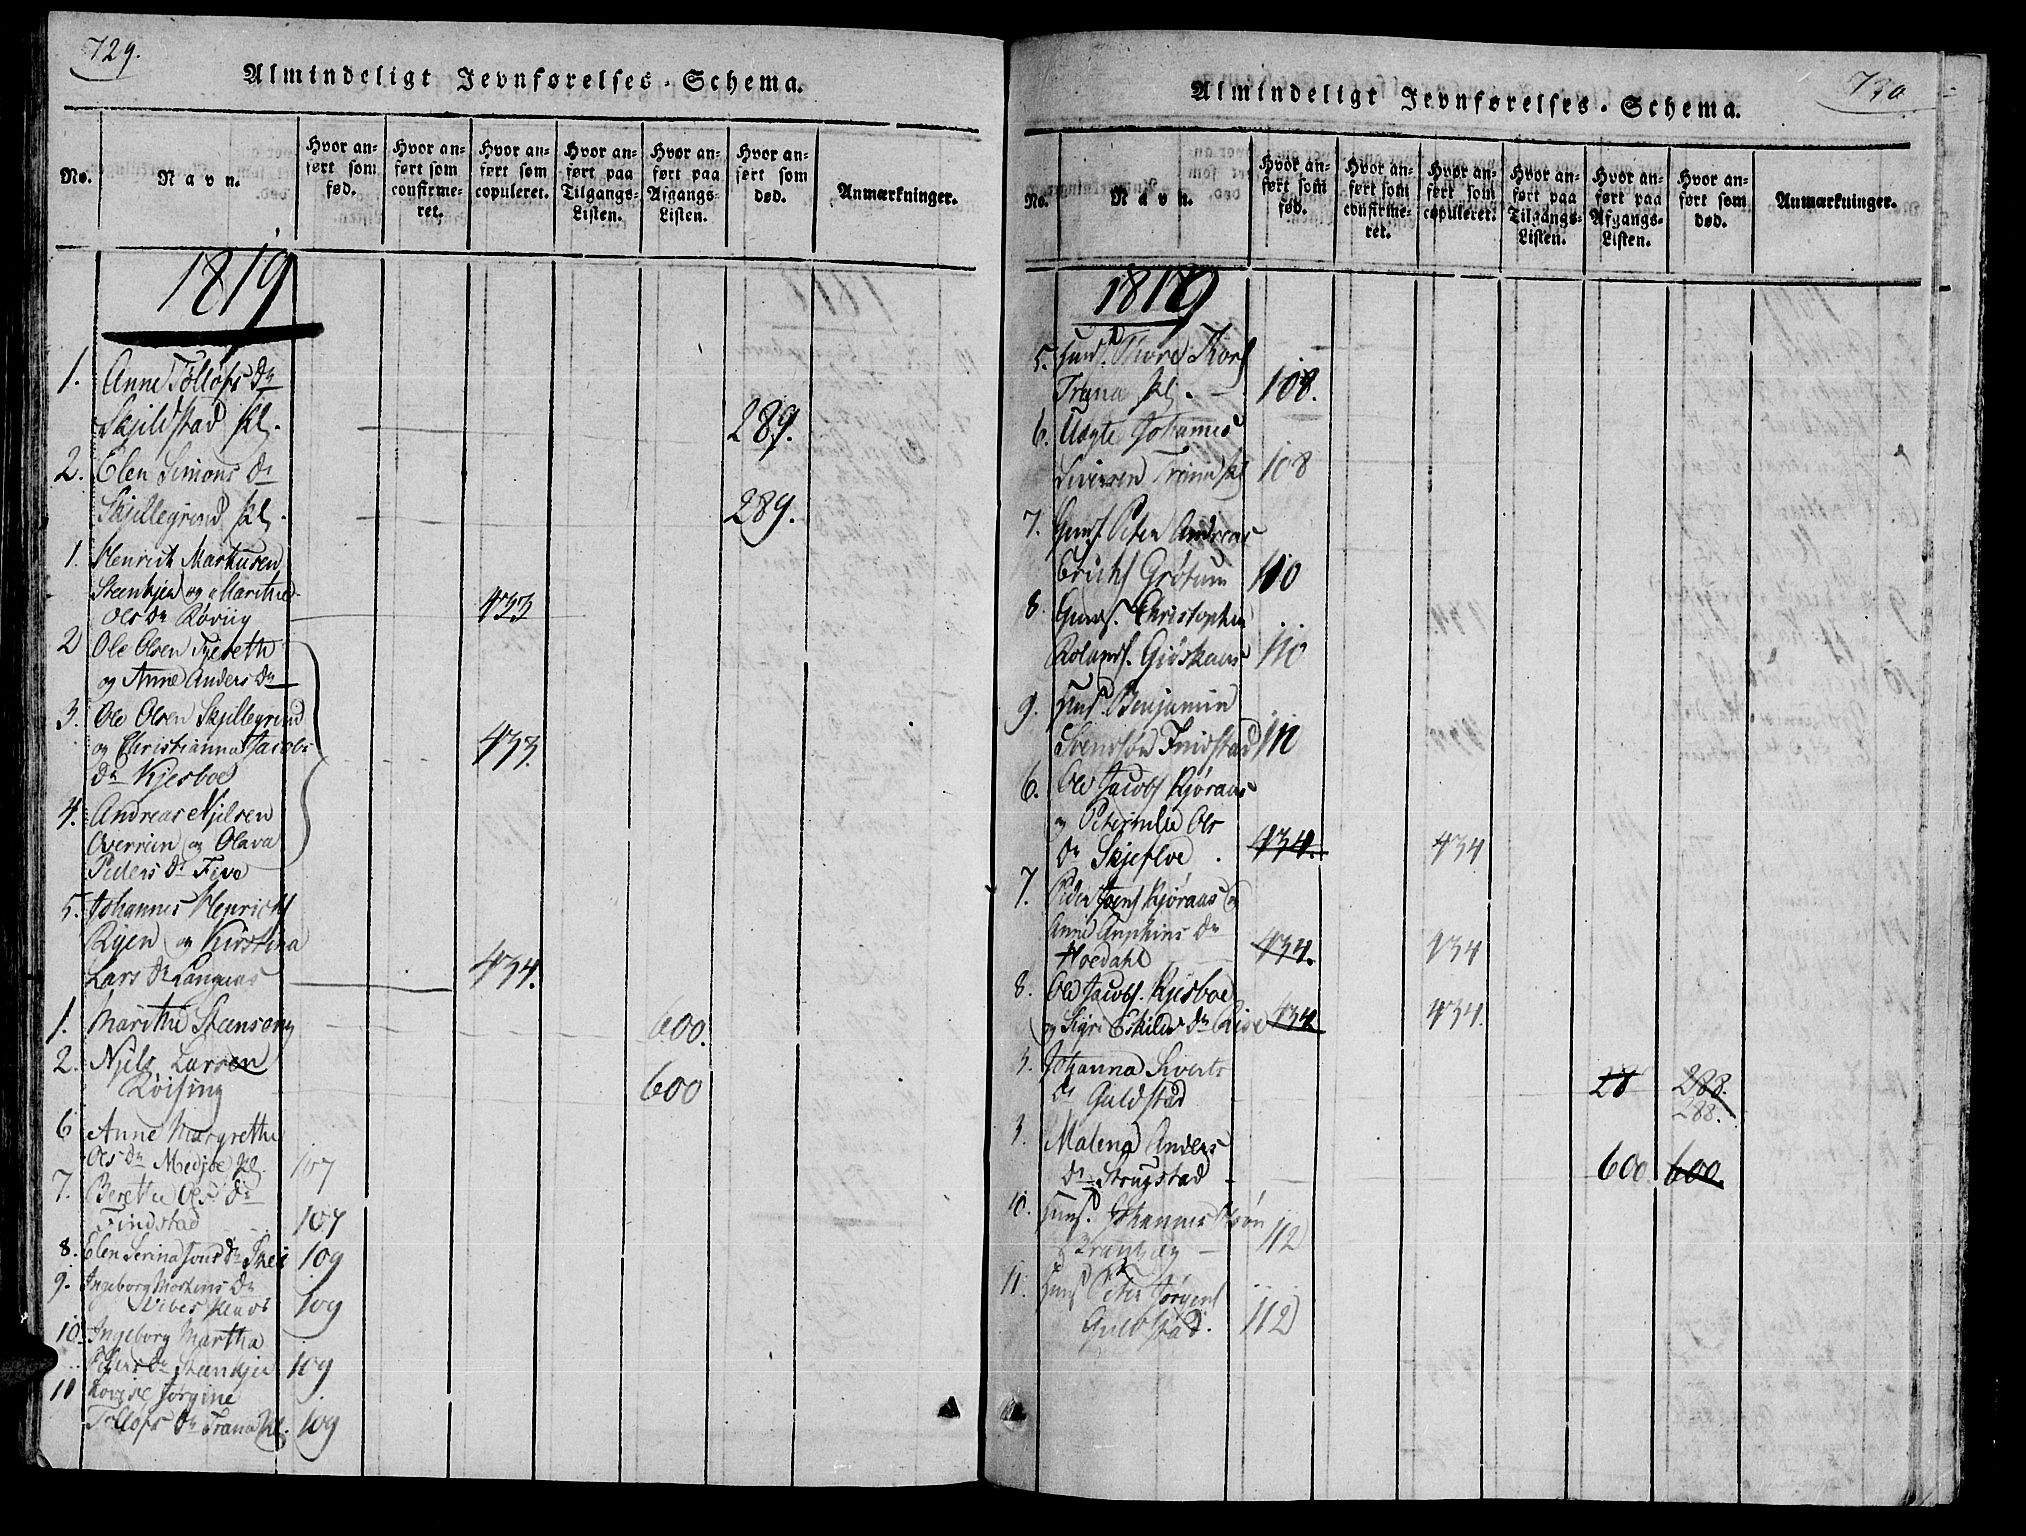 729.
Almindeligt Jevnførelses-Schema.
No.
Navn.
Hvor anført som fød.
Hvor anført som confirmeret.
Hvor anført som copuleret.
Hvor anført paa Tilgangs-Listen.
Hvor anført paa Afgangs-Listen.
Hvor anført som død.
Anmærkninger.
1819
1. Anne Tollofs Dr
Skjelstad pl. 289.
2. Elen Simons Dr
Skjellegrind pl. 289.
1. Henrich Markusen
Steenkjer og Marithe
Ols Dr Røviig 433
2 Ole Olsen Tjereth
og Anne Anders Dr
3. Ole Olsen Skjellegrind
og Christianna Jacobs
Dr Kjesboe 433.
4. Andreas Njelsen
Overrein og Olava
Peders Dr Five
5. Johannes Henrichs
Ryen og Kirstina
Lars Dr Langaas 434.
1. Marithe Steensong 600.
2. Njels Larsen
Røising 600
6 Anne Margrethe
Ols Dr Medjoe pl. 107
7. Berethe Ols Dr
Findstad 107
8. Elen Serina Jons Dr 109
9. Ingeborg Mortens Dr
109
10. Ingeborg Martha
Peders Dr Steenkjer 109
11 Lovise Jørgine
Tollofs Dr Trana pl. 109
730
Almindeligt Jevnførelses-Schema.
No.
Navn.
Hvor anført som fød.
Hvor anført som confirmeret.
Hvor anført som copuleret.
Hvor anført paa Tilgangs-Listen.
Hvor anført paa Afgangs-Listen.
Hvor anført som død.
Anmærkninger.
1819
5. Thore
Trana pl. 108.
6. Uægte Johannes
Siversen Trana pl 108
7. Peter Andreas
Erichs Grøtum 110
8. Christopher
Rolands. Gjøskaas 110
9. Benjamin
Svensøn Findstad 110
6. Ole Jacobs Kjøraas
og Peternille Ols
Dr Skjefloe 434. 434
7. Peder Jens Kjøraas og
Anne Dr
Hoedahl 434. 434
8. Ole Jacobs. Kjesboe
og Sigri Eskilds Dr Rise 434 434.
3. Johanna Siverts
Dr Guldstad 28 288.
288.
3. Malena Anders
Dr Strugstad 600 600.
10. Johannes
112
11. Peter Jørgens
Guldstad. 112